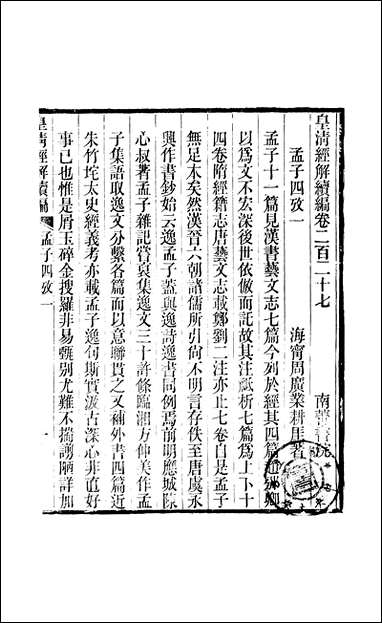 皇清經解續編卷二百二十七
南菁書院
孟子四攷一
海寧周廣業耕厓著
孟子十一篇見漢書藝文志七篇今列於經其四篇近邠卿
以為文不宏深後世依倣而託故其注祇析七篇為上下十
四卷隋經籍志唐藝文志載鄭劉二注亦止七卷自是孟子
無足本矣然漢晉六朝諸儒所引尚不明言存佚至唐虞永
興作書鈔始云逸孟子蓋與逸詩逸書同例焉前明應城陳
心叔著孟子雜記嘗裒集逸文三十許條臨湘方仲美作孟
子集語取逸文分繫各篇而以意聯貫之又補外書四篇近
朱竹垞太史經義考亦載孟子逸句斯實汲古深心非直好
事已也惟是屑玉碎金搜羅非易甄别尤難不揣謭陋詳加
皇清經解續編
孟子四攷一
一